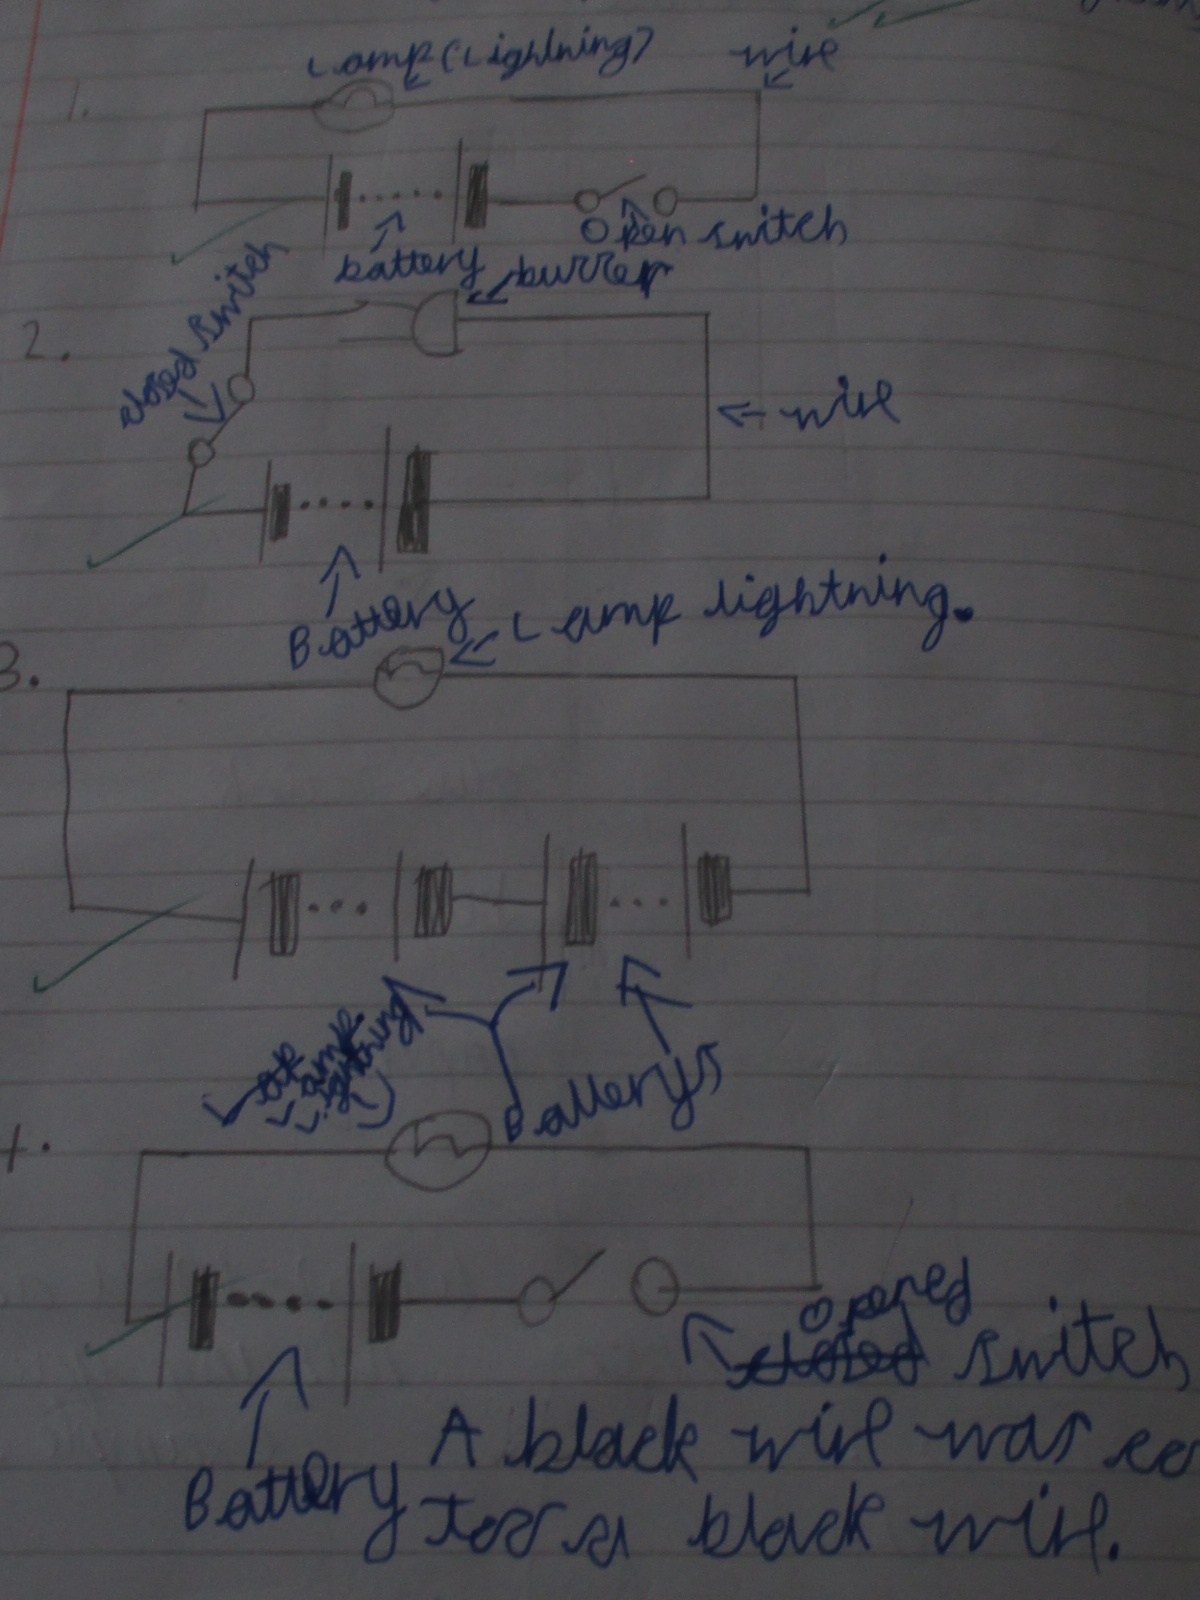 1.
Lamp (Lightning)
wire
Open switch
battery
2.
burrer
closed switch
wire
Battery
3.
Lamp lightning.
Batterys
4.
Lamp
Lightning
Opened
closed switch
Battery
A black wire was
to a black wire.